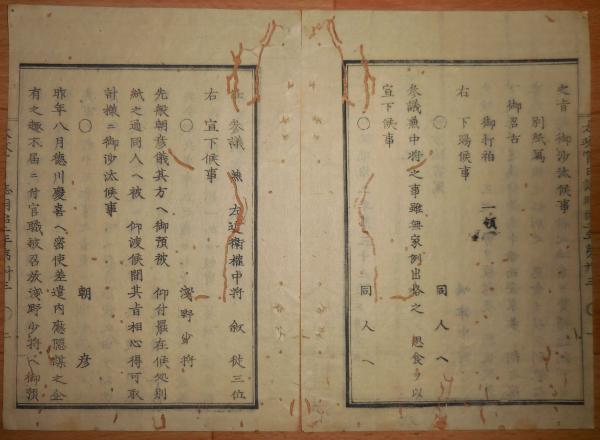 之旨 御沙汰候事
別紙寫
御召古
御打袙 一領
右 下賜候事
〇 同人ヘ
参議兼中将之事雖無家例出格之 思食ヲ以
宣下候事
〇 同人ヘ
任 参議 兼 左近衛権中将 敘 従三位
右 宣下候事
〇 浅野少将
先般朝彦儀其方ヘ御預被 仰付置在候処別
紙之通同人ヘ被 仰渡候間其旨相心得可取
計様ニ御沙汰候事
〇 朝彦
昨年八月徳川慶喜ヘ密使差遣内應隠謀之企
有之趣不届ニ付官職被召放浅野少将ヘ御預